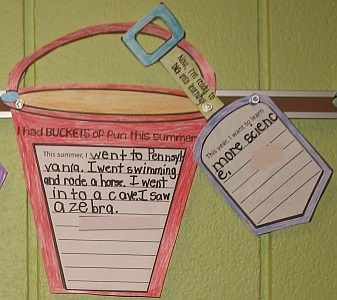 I had BUCKETS of fun this summer
This summer, I went to Pennsyl
vania. I went swimming
and rode a horse. I went
into a cave. I saw
a zebra.
Now, I'm ready to
dig into learning!
This year, I want to learn
more scienc
e.